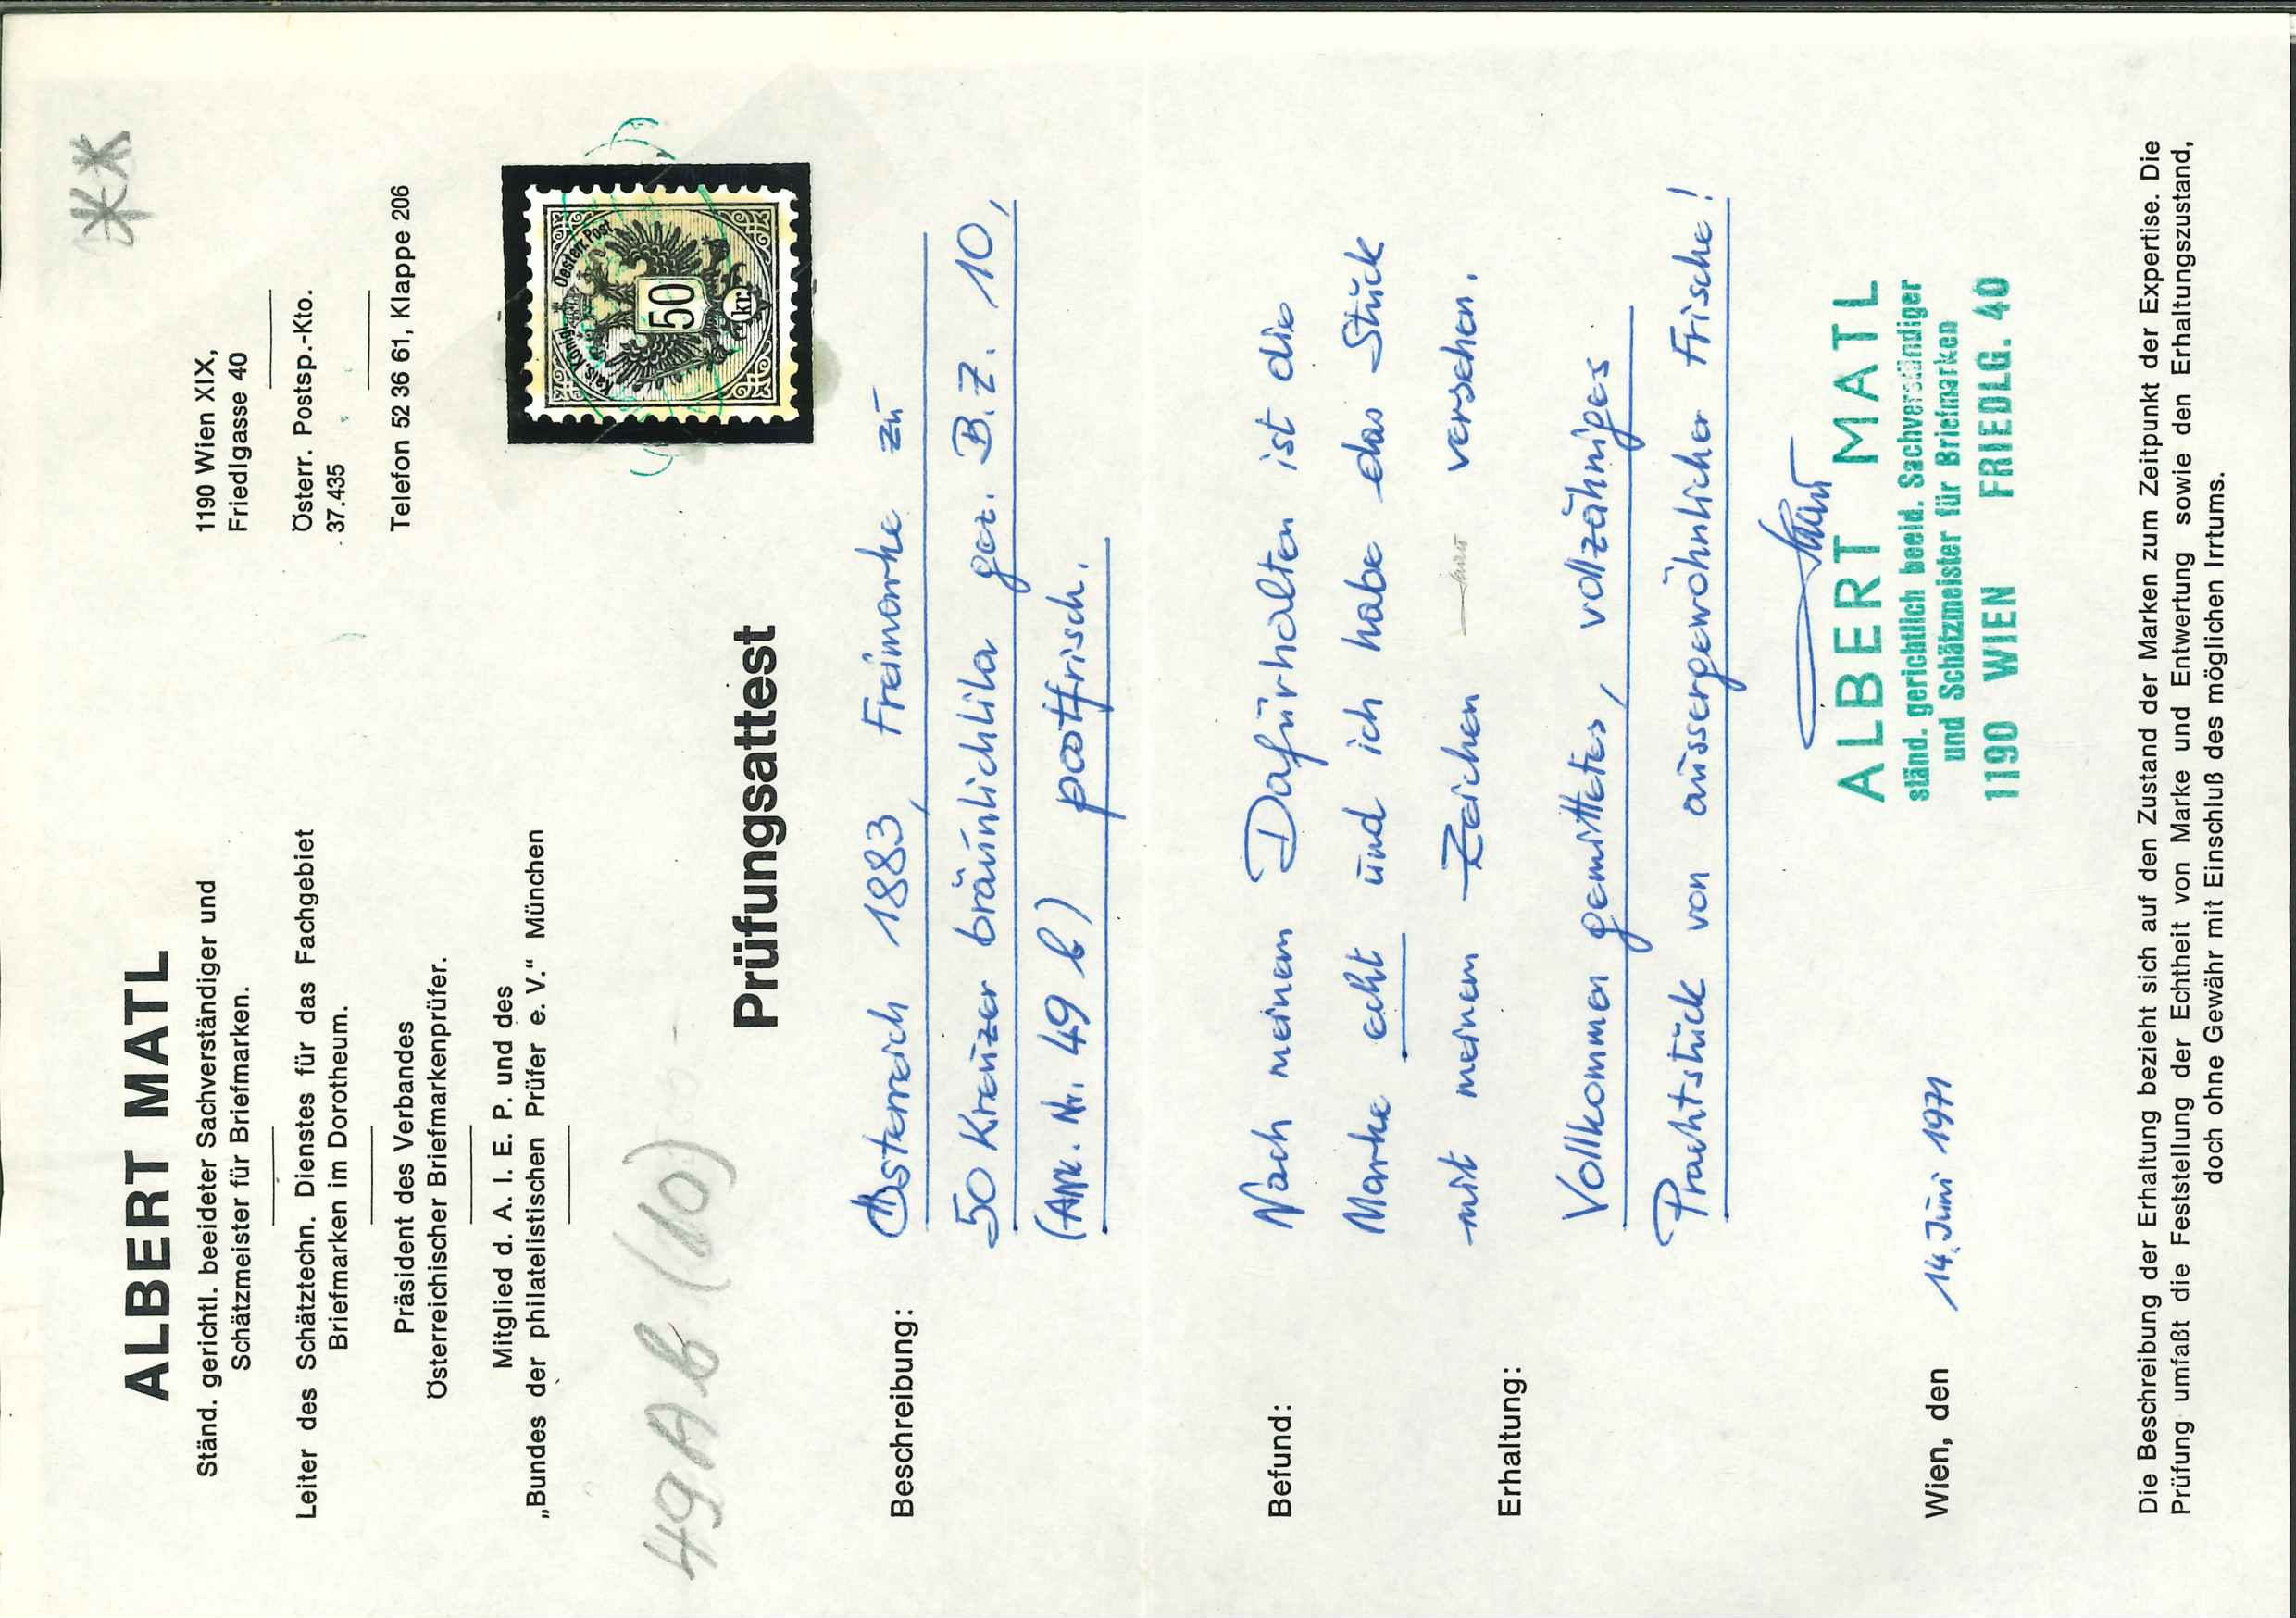 **
ALBERT MATL
Ständ. gerichtl. beeideter Sachverständiger und
Schätzmeister für Briefmarken.
Leiter des Schätztechn. Dienstes für das Fachgebiet
Briefmarken im Dorotheum.
Präsident des Verbandes
Österreichischer Briefmarkenprüfer.
Mitglied d. A. I. E. P. und des
„Bundes der philatelistischen Prüfer e. V.“ München
1190 Wien XIX,
Friedlgasse 40
Österr. Postsp.-Kto.
37.435
Telefon 52 36 61, Klappe 206
Kais. Königl. Oesterr. Post
50
kr
49Ab (10)
Prüfungsattest
Beschreibung:
Österreich 1883, Freimarke zu
50 Kreuzer bräunlichlila gez. B.Z. 10,
(ANK. Nr. 49 b) postfrisch.
Befund:
Nach meinem Dafürhalten ist die
Marke echt und ich habe das Stück
mit meinem Zeichen versehen.
Erhaltung:
Vollkommen gemittetes, vollzähniges
Prachtstück von aussergewöhnlicher Frische!
ALBERT MATL
ständ. gerichtlich beeid. Sachverständiger
und Schätzmeister für Briefmarken
1190 WIEN FRIEDLG. 40
Wien, den 14. Juni 1971
Die Beschreibung der Erhaltung bezieht sich auf den Zustand der Marken zum Zeitpunkt der Expertise. Die
Prüfung umfaßt die Feststellung der Echtheit von Marke und Entwertung sowie den Erhaltungszustand,
doch ohne Gewähr mit Einschluß des möglichen Irrtums.